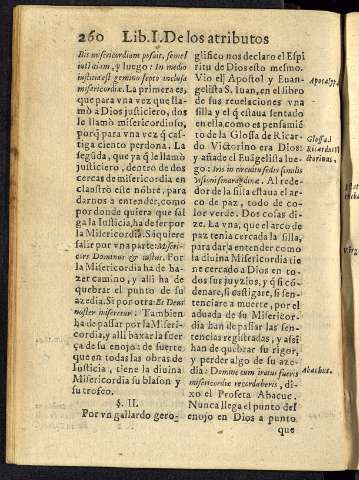 260 Lib. I. De los atributos
bis misericordiam posuit, semel
iustitiam, y luego: In medio
iustitia est gemino septo inclusa
misericordiæ. La primera es,
que para vna vez que lla-
mò a Dios justiciero, dos
le llamò misericordioso,
porq̃ para vna vez q̃ cas-
tiga ciento perdona. La
segũda, que ya q̃ le llamò
justiciero, dentro de dos
cercas de misericordia, en
claustrò este nõbre, para
darnos a entender, como
por donde quiera que sal
ga la Iusticia, ha de ser por
la Misericordia. Si quiere
salir por vna parte: Miseri-
cors Dominus & iustus. Por
la Misericordia ha de ha-
zer camino, y alli ha de
quebrar el punto de su
azedia. Si por otra: Et Deus
noster miseretur: Tambien
ha de passar por la Miseri-
cordia, y alli baxar la fuer
ça de su enojo: de suerte
que en todas las obras de
Iusticia, tiene la diuina
Misericordia su blason y
su trofeo.
§. II.
Por vn gallardo gero-
glifico nos declaro el Espi
ritu de Dios esto mesmo.
Vio el Apostol y Euan-
gelista S. Iuan, en el libro
de sus reuelaciones vna
silla y el q̃ estaua sentado
en ella como es pensamiẽ
to de la Glossa de Ricardo
Victorino era Dios:
y añade el Euãgelista lue-
go: Iris in circuitu sedis similis
visioni smaragdinæ. Al rede-
dor de la silla estaua el ar-
co de paz, todo de co-
lor verde. Dos cosas di-
ze. La vna, que el arco de
paz tenia cercada la silla,
para dar a entender como
la diuina Misericordia tie
ne cercado a Dios en to-
dos sus juyzios, y q̃ si cõ-
denare, si castigare, si sen-
tenciare a muerte, por el
aduada de su Misericor-
dia han de passar las sen-
tencias registradas, y assi
han de quebrar su rigor,
y perder algo de su aze-
dia: Domine cum iratus fueris
misericordiæ recordaberis, di-
xo el Profeta Abacuc.
Nunca llega el punto del
enojo en Dios a punto
que
Apocalyp.
Glossa.
Abachus.